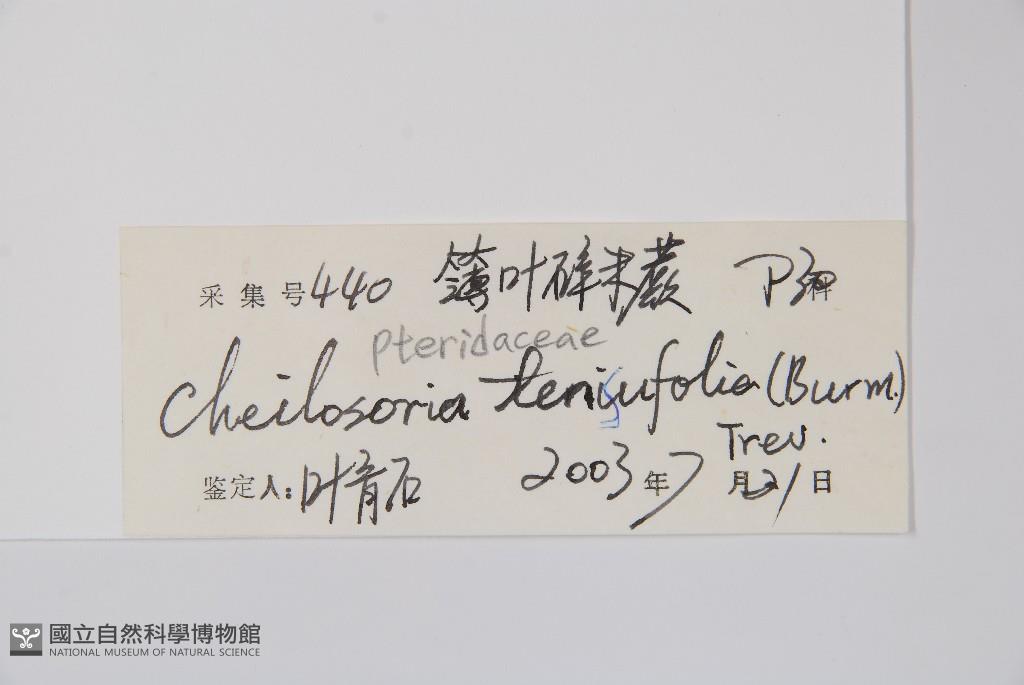 采集号440 薄叶碎米蕨 P30科
pteridaceae
Cheilosoria tenisufolia (Burm.)
Trev.
鉴定人:叶育石 2003年7月21日
國立自然科學博物館
NATIONAL MUSEUM OF NATURAL SCIENCE